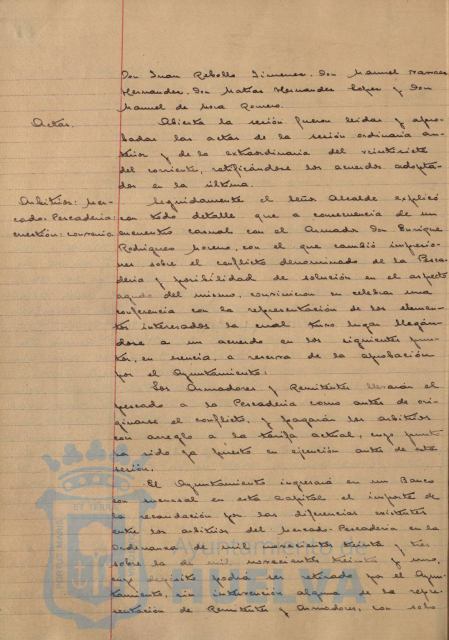 Don Juan Rebollo Jimenez, don Manuel Narraez
Hernandez, don Matias Hernandez Lopez y don
Manuel de Mora Romero.
Actas.
Abierta la sesión fueron leidas y apro-
badas las actas de la sesión ordinaria an-
terior y de la extraordinaria del veintisiete
del corriente, ratificándose los acuerdos adopta-
dos en la última.
Arbitrios: Mer-
cado-Pescaderia:
cuestión: convenio.
Seguidamente el señor Alcalde explicó
con todo detalle que a consecuencia de un
encuentro casual con el Armador don Enrique
Rodriguez Moreno, con el que cambió impresio-
nes sobre el conflicto denominado de la Pesca-
deria y posibilidad de solución en el aspecto
agudo del mismo, convinieron en celebrar una
conferencia con la representación de los elemen-
tos interesados la cual tuvo lugar llegán-
dose a un acuerdo en los siguientes pun-
tos, en esencia, a reserva de la aprobación
por el Ayuntamiento:
Los Armadores y Remitentes llevarán el
pescado a la Pescaderia como antes de ori-
ginarse el conflicto, y pagarán los arbitrios
con arreglo a la tarifa actual, cuyo punto
ha sido ya puesto en ejecución antes de esta
sesión.
El Ayuntamiento ingresará en un Banco
con sucursal en esta Capital el importe de
la recaudación por las diferencias existentes
entre los arbitrios del Mercado-Pescaderia en la
Ordenanza de mil novecientos treinta y tres
sobre la de mil novecientos treinta y uno,
cuyo depósito podrá ser retirado por el Ayun-
tamiento, sin intervención alguna de la repre-
sentación de Remitentes y Armadores, con solo
ET TERRAE
Ayuntamiento de
HUELVA